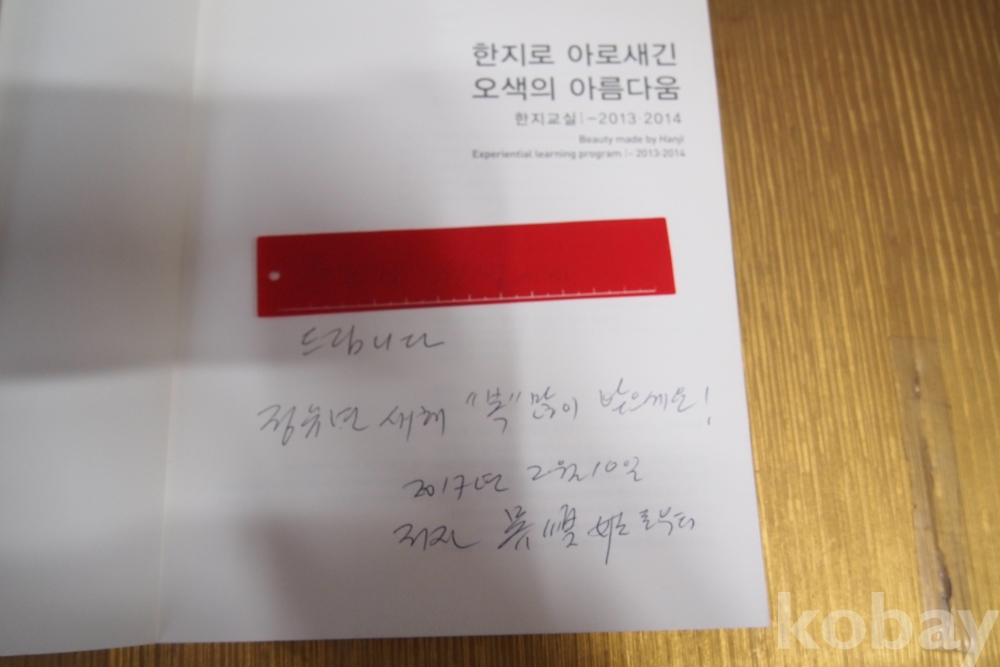 한지로 아로새긴
오색의 아름다움
한지교실 I - 2013·2014
Beauty made by Hanji
Experiential learning program I - 2013·2014
드립니다
정유년 새해 "복" 많이 받으세요!
2017년 2월 10일
저자 吳 姬로부터
kobay